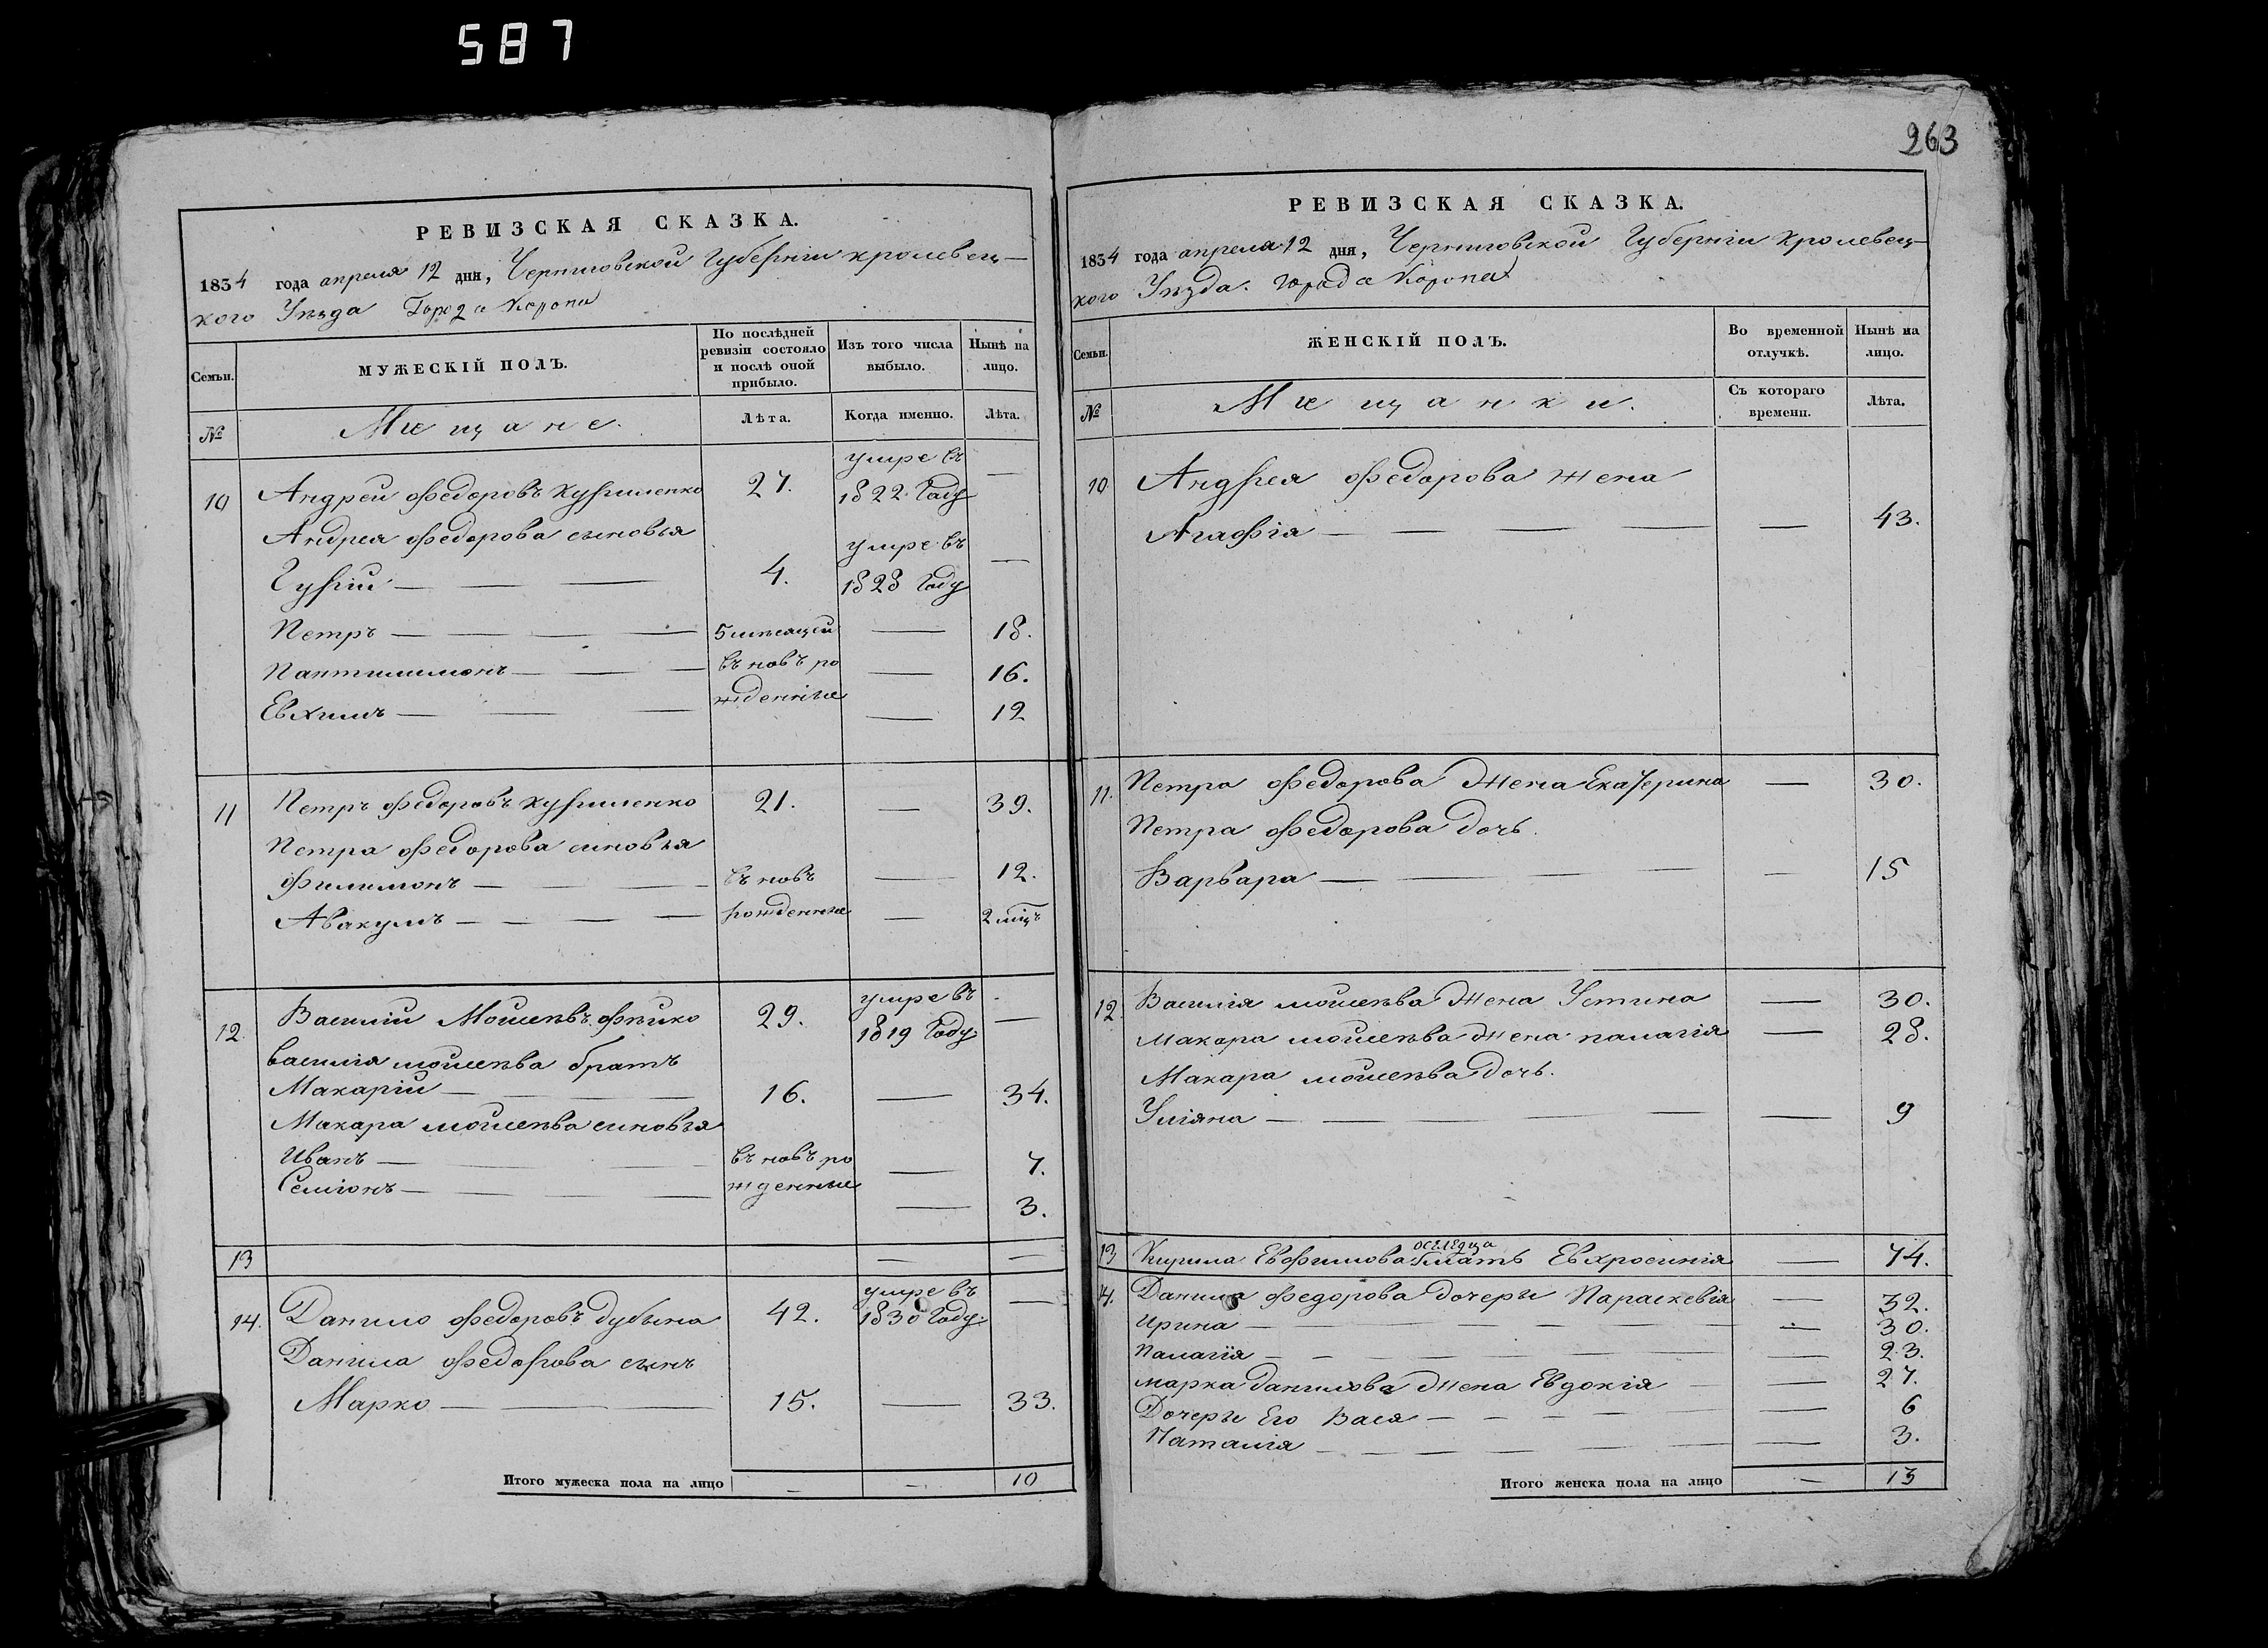 587
263
РЕВИЗСКАЯ СКАЗКА.
1834 года апреля 12 дня, Черниговской Губернiи кролевец-
кого Уѣзда Города Коропа
Семьи.
МУЖЕСКІЙ ПОЛЪ.
По послѣдней ревизіи состояло и послѣ оной прибыло.
Изъ того числа выбыло.
Нынѣ на лицо.
№
Мѣщане.
Лѣта.
Когда именно.
Лѣта.
10 Андрей Федоровъ 27. умре въ 1822 Году —
Андрея Федорова сыновья
Гурiй — — — 4. умре въ 1828 Году —
Петръ — — — 5 мѣсяцей — 18.
Пантилимонъ — — — въ новъ ро — 16.
Евхимъ — — — жденные — 12
11 Петръ Федоровъ 21. — 39.
Петра Федорова синовья
Филимонъ — — въ новъ — 12.
Авакумъ — — — рожденные — 2 мцъ
12. Василiй Моисеѣвъ 29. умре въ 1819 Году —
Василiя моисеѣва братъ
Макарiй — — — — 16. — 34.
Макара моисеѣва синовья
Иванъ — — въ новъ ро — 7.
Семiонъ — — — жденные — 3.
13 — —
14. Данило Федоровъ дубына 42. умре въ 1830 Году —
Данила Федорова сынъ
Марко — — — 15. — 33.
Итого мужеска пола на лицо — — 10
РЕВИЗСКАЯ СКАЗКА.
1834 года апреля 12 дня, Черниговской Губернiи Кролевец-
кого Уѣзда. города Коропа
Семьи.
ЖЕНСКІЙ ПОЛЪ.
Во временной отлучкѣ.
Нынѣ на лицо.
№
Мѣщанки.
Съ котораго времени.
Лѣта.
10. Андрея Федорова жена
Агафiя — — — — — 43.
11. Петра Федорова жена Екатерина — 30.
Петра Федорова дочь.
Варвара — — — — — 15
12. Василiя моисеѣва жена Устина — 30.
Макара моисеѣва жена палагiя — 28.
Макара моисеѣва дочь.
Улiяна — — — — — 9
13 Кирила Евфимова оселедца мать Евхросинiя — 74.
14. Данила Федорова дочеры Параскевiя — 32.
Ирина — — — — — 30.
Палагiя — — — — — 23.
марка данилова жена Евдокiя — — 27.
Дочеры Его Вася — — — — — 6
Наталiя — — — — — 3.
Итого женска пола на лицо — 13